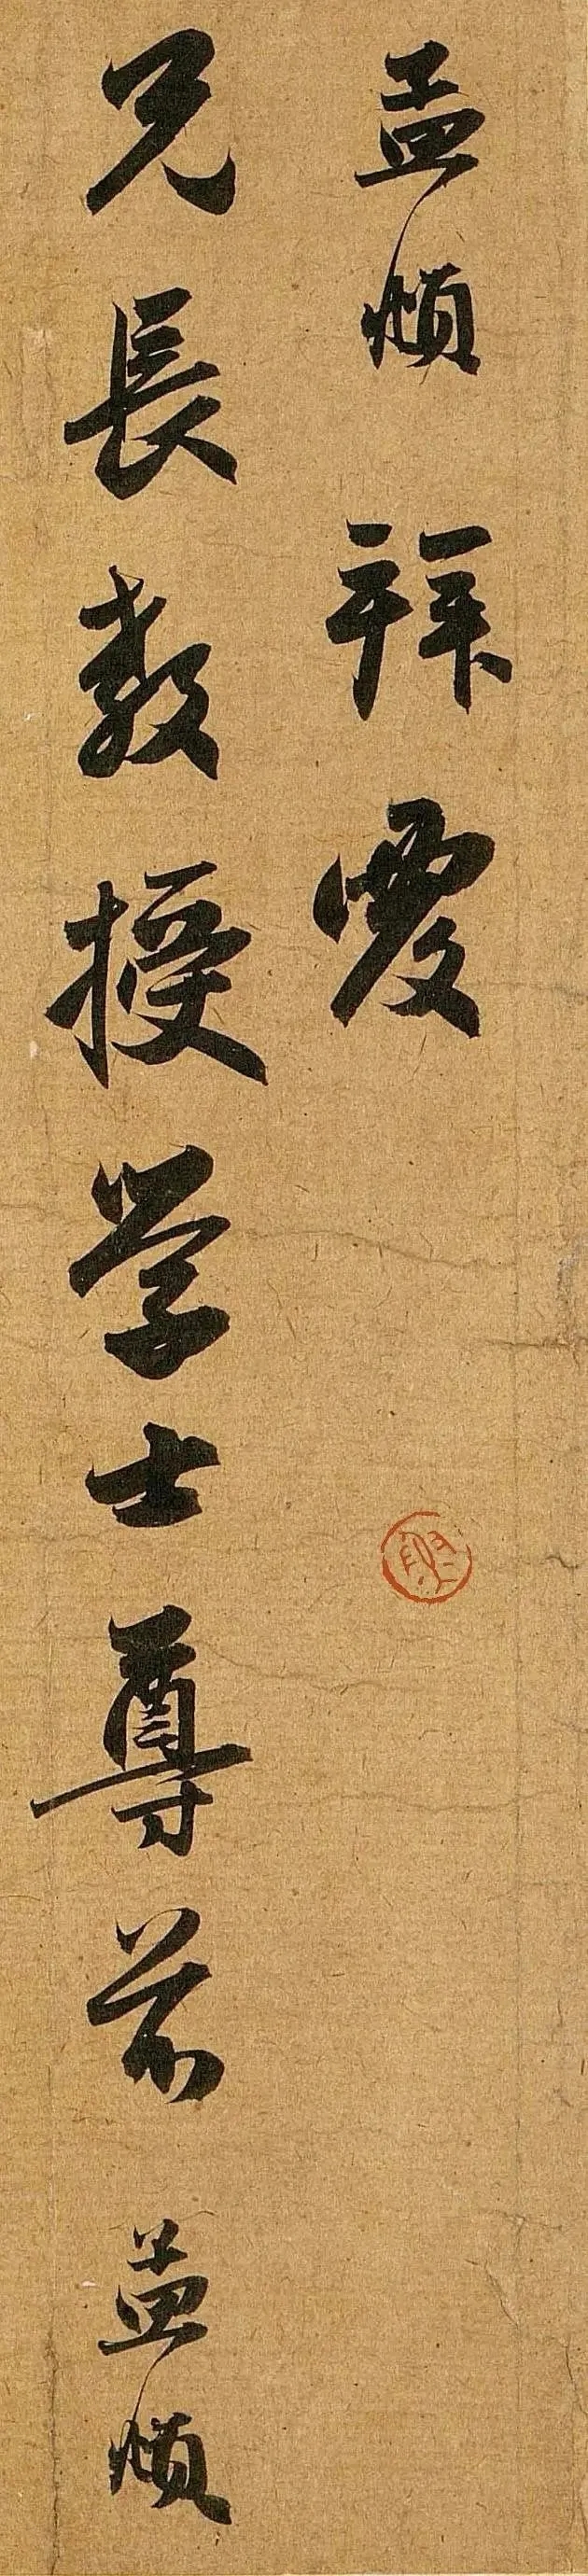 孟頫拜覆
兄長教授学士尊前孟頫